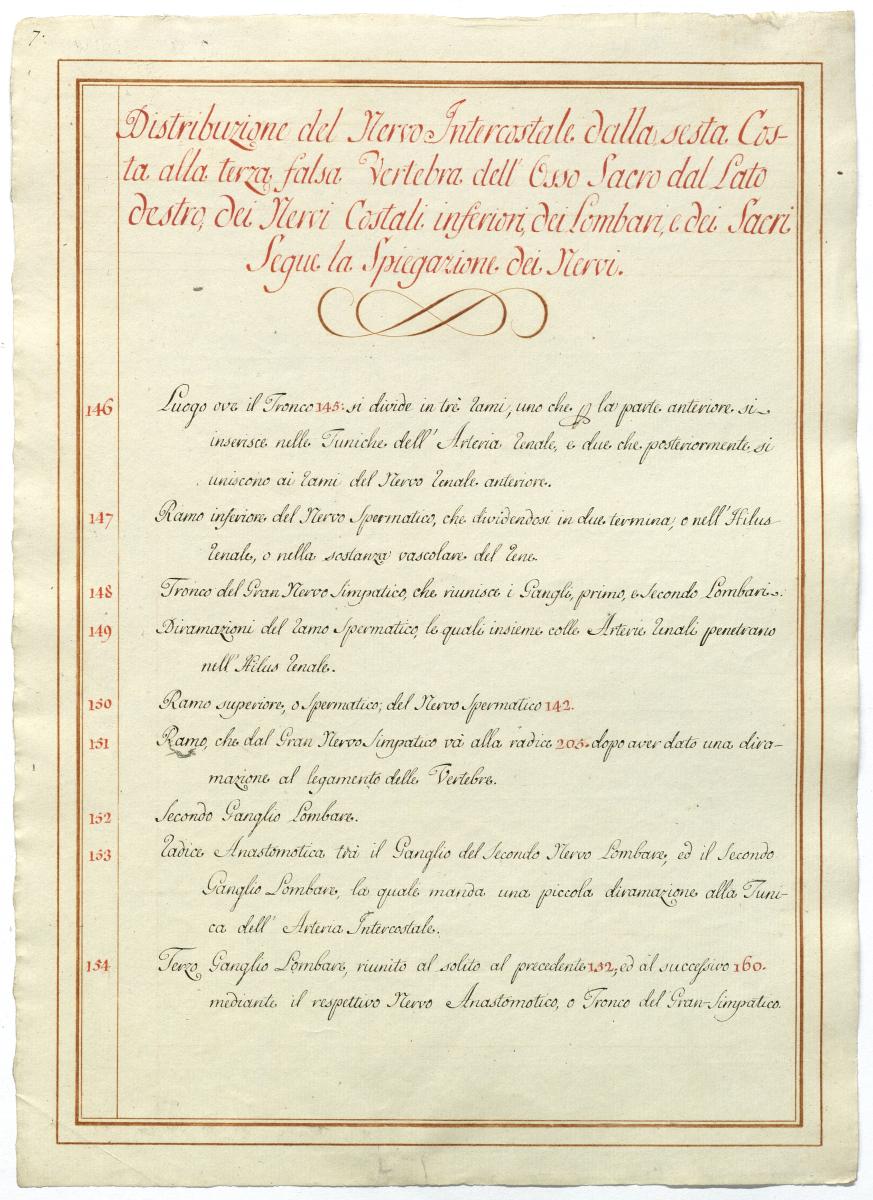 7.
Distribuzione del Nervo Intercostale dalla sesta Cos-
ta alla terza falsa Vertebra dell' Osso Sacro dal Lato
destro, dei Nervi Costali inferiori, dei Lombari, e dei Sacri
Segue la Spiegazione dei Nervi.
146 Luogo ove il Tronco 145. si divide in trè rami, uno che p la parte anteriore si
inserisce nelle Tuniche dell' Arteria renale, e due che posteriormente si
uniscono ai rami del Nervo renale anteriore.
147 Ramo inferiore del Nervo Spermatico, che dividendosi in due termina, o nell' Hilus
renale, o nella sostanza vascolare del rene.
148 Tronco del Gran Nervo Simpatico, che riunisce i Gangli, primo, e Secondo Lombari.
149 Diramazioni del ramo Spermatico, le quali insieme colle Arterie renali penetrano
nell' Hilus renale.
150 Ramo superiore, o Spermatico, del Nervo Spermatico 142.
151 Ramo, che dal Gran Nervo Simpatico và alla radice 205. dopo aver dato una dira-
mazione al legamento delle Vertebre.
152 Secondo Ganglio Lombare.
153 Radice Anastomotica trà il Ganglio del Secondo Nervo Lombare, ed il Secondo
Ganglio Lombare, la quale manda una piccola diramazione alla Tuni-
ca dell' Arteria Intercostale.
154 Terzo Ganglio Lombare, riunito al solito al precedente 152, ed al successivo 160.
mediante il respettivo Nervo Anastomotico, o Tronco del Gran-Simpatico.